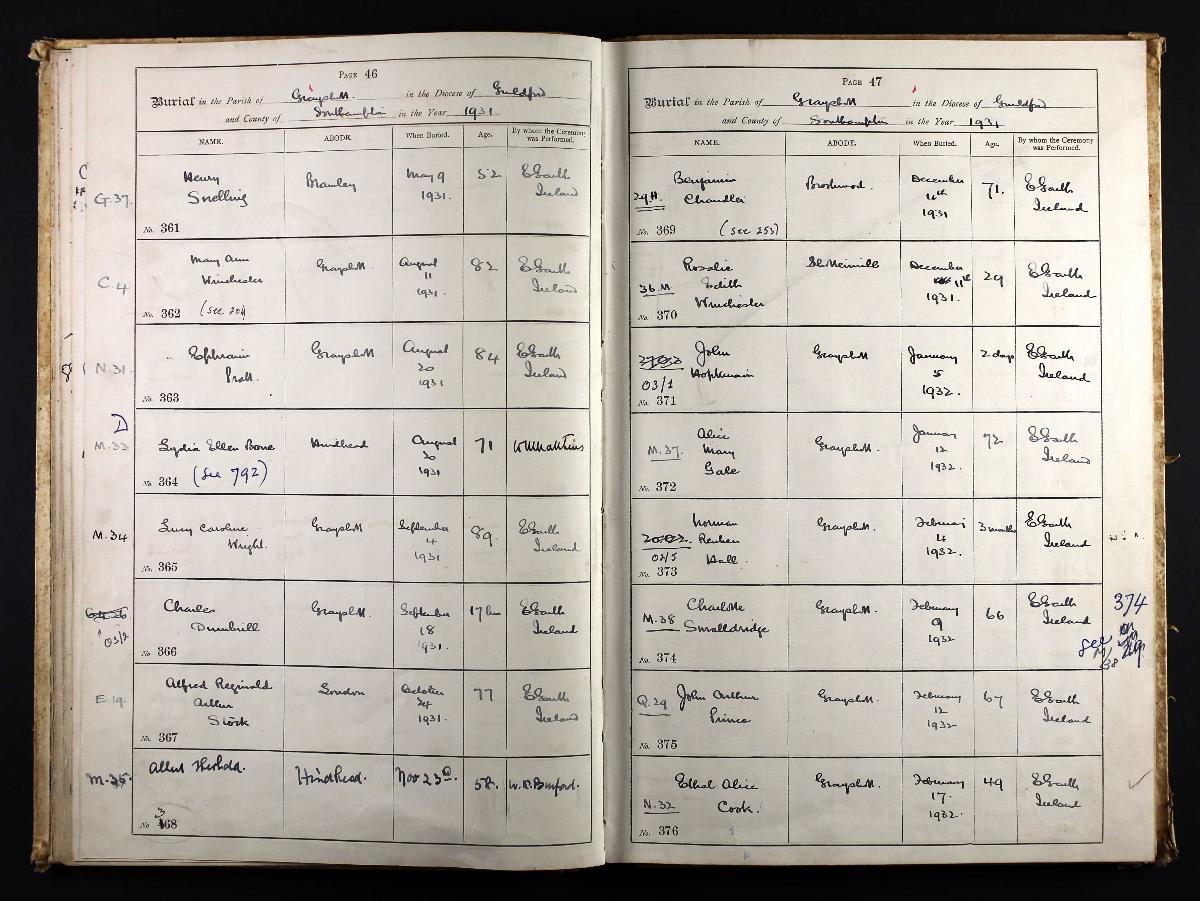 PAGE 46
Burial in the Parish of Grayshott in the Diocese of Guildford
and County of Southampton in the Year 1931
NAME. ABODE. When Buried. Age. By whom the Ceremony was Performed.
G.37. Henry Snelling Bramley May 9 1931. 52 E Ireland
No. 361
C.4 Mary Ann Winchester Grayshott August 11 1931. 82 E Ireland
No. 362 (see 204)
8 N.31. Ephraim Pratt. Grayshott August 20 1931 84 E Ireland
No. 363
D
M.33 Lydia Ellen Bone Hindhead August 20 1931 71
No. 364 (See 792)
M.34 Lucy Caroline Wright. Grayshott September 4 1931 89. E Ireland
No. 365
03/2 Charles Grayshott September 18 1931. 17 hrs E Ireland
No. 366
E.19. Alfred Reginald Arthur Stock London October 24 1931. 77 E Ireland
No. 367
M.35. Albert Hindhead. Nov 23rd. 58. W. R. Binford.
3
No 468
PAGE 47
Burial in the Parish of Grayshott in the Diocese of Guildford
and County of Southampton in the Year 1931
NAME. ABODE. When Buried. Age. By whom the Ceremony was Performed.
29.H. Benjamin Chandler December 1931 71. E Ireland
No. 369 (see 253)
36.M Rosalie Edith Winchester December 11th 1931. 29 E Ireland
No. 370
03/1 John Grayshott January 5 1932. 2 days E Ireland
No. 371
M.37. Alice Mary Gale Grayshott. January 12 1932. 72 E Ireland
No. 372
20.02. 02/5 Norman Reuben Hall. Grayshott. February 4 1932. 3 months E Ireland
No. 373
M.38 Charlotte Smalldridge Grayshott. February 9 1932 66 E Ireland
No. 374
374
see on
Q.29 John Arthur Prince Grayshott. February 12 1932 67 E Ireland
No. 375
N.32 Ethel Alice Cook. Grayshott. February 17. 1932. 49 E Ireland
No. 376